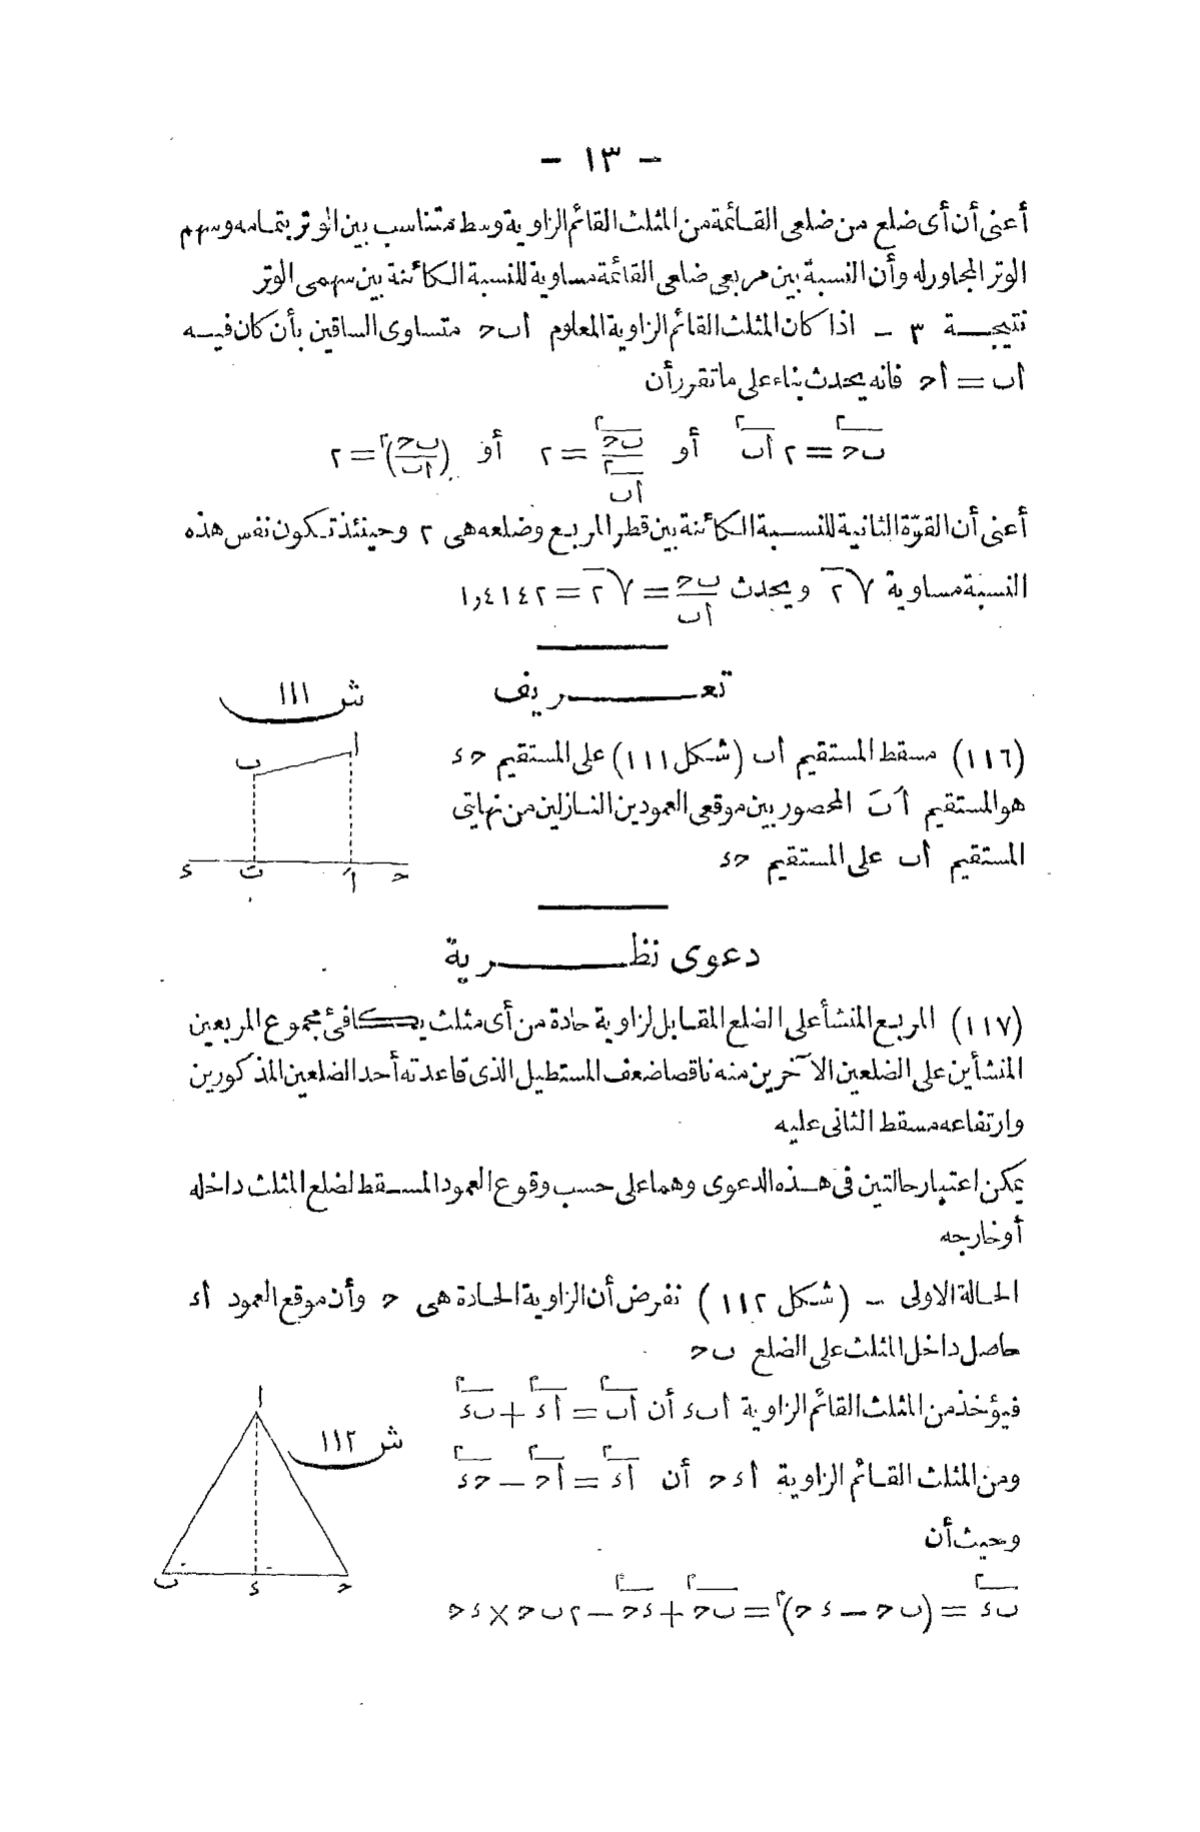 - ١٣ -
أعنى أن أى ضلع من ضلعى القائمة من المثلث القائم الزاوية وسط متناسب بين الوتر بتمامه وسهم
الوتر المجاور له وأن النسبة بين مربعى ضلعى القائمة مساوية للنسبة الكائنة بين سهمى الوتر
نتيجة ٣ - اذا كان المثلث القائم الزاوية المعلوم أ ب ح متساوى الساقين بأن كان فيه
أ ب = أ ح فانه يحدث بناء على ما تقرر أن
ب ح٢ = ٢ أ ب٢ أو ب ح٢ / أ ب٢ = ٢ أو (ب ح / أ ب)٢ = ٢
أعنى أن القوّة الثانية للنسبة الكائنة بين قطر المربع وضلعه هى ٢ وحينئذ تكون نفس هذه
النسبة مساوية √٢ ويحدث ب ح / أ ب = √٢ = ١,٤١٤٢
تعريف
ش ١١١
(١١٦) مسقط المستقيم أ ب (شكل ١١١) على المستقيم ح د
هو المستقيم أَ بَ المحصور بين موقعى العمودين النازلين من نهايتى
المستقيم أ ب على المستقيم ح د
ا
ب
د بَ اَ ح
دعوى نظرية
(١١٧) المربع المنشأ على الضلع المقابل لزاوية حادة من أى مثلث يكافئ مجموع المربعين
المنشأين على الضلعين الآخرين منه ناقصا ضعف المستطيل الذى قاعدته أحد الضلعين المذكورين
وارتفاعه مسقط الثانى عليه
يمكن اعتبار حالتين فى هذه الدعوى وهما على حسب وقوع العمود المسقط لضلع المثلث داخله
أو خارجه
الحالة الاولى - (شكل ١١٢) نفرض أن الزاوية الحادة هى ح وأن موقع العمود أ د
حاصل داخل المثلث على الضلع ب ح
فيؤخذ من المثلث القائم الزاوية أ ب د أن أ ب٢ = أ د٢ + ب د٢
ش ١١٢
ومن المثلث القائم الزاوية أ د ح أن أ د٢ = أ ح٢ - ح د٢
وحيث أن
ب د٢ = (ب ح - د ح)٢ = ب ح٢ + د ح٢ - ٢ ب ح × د ح
ا
ب د ح